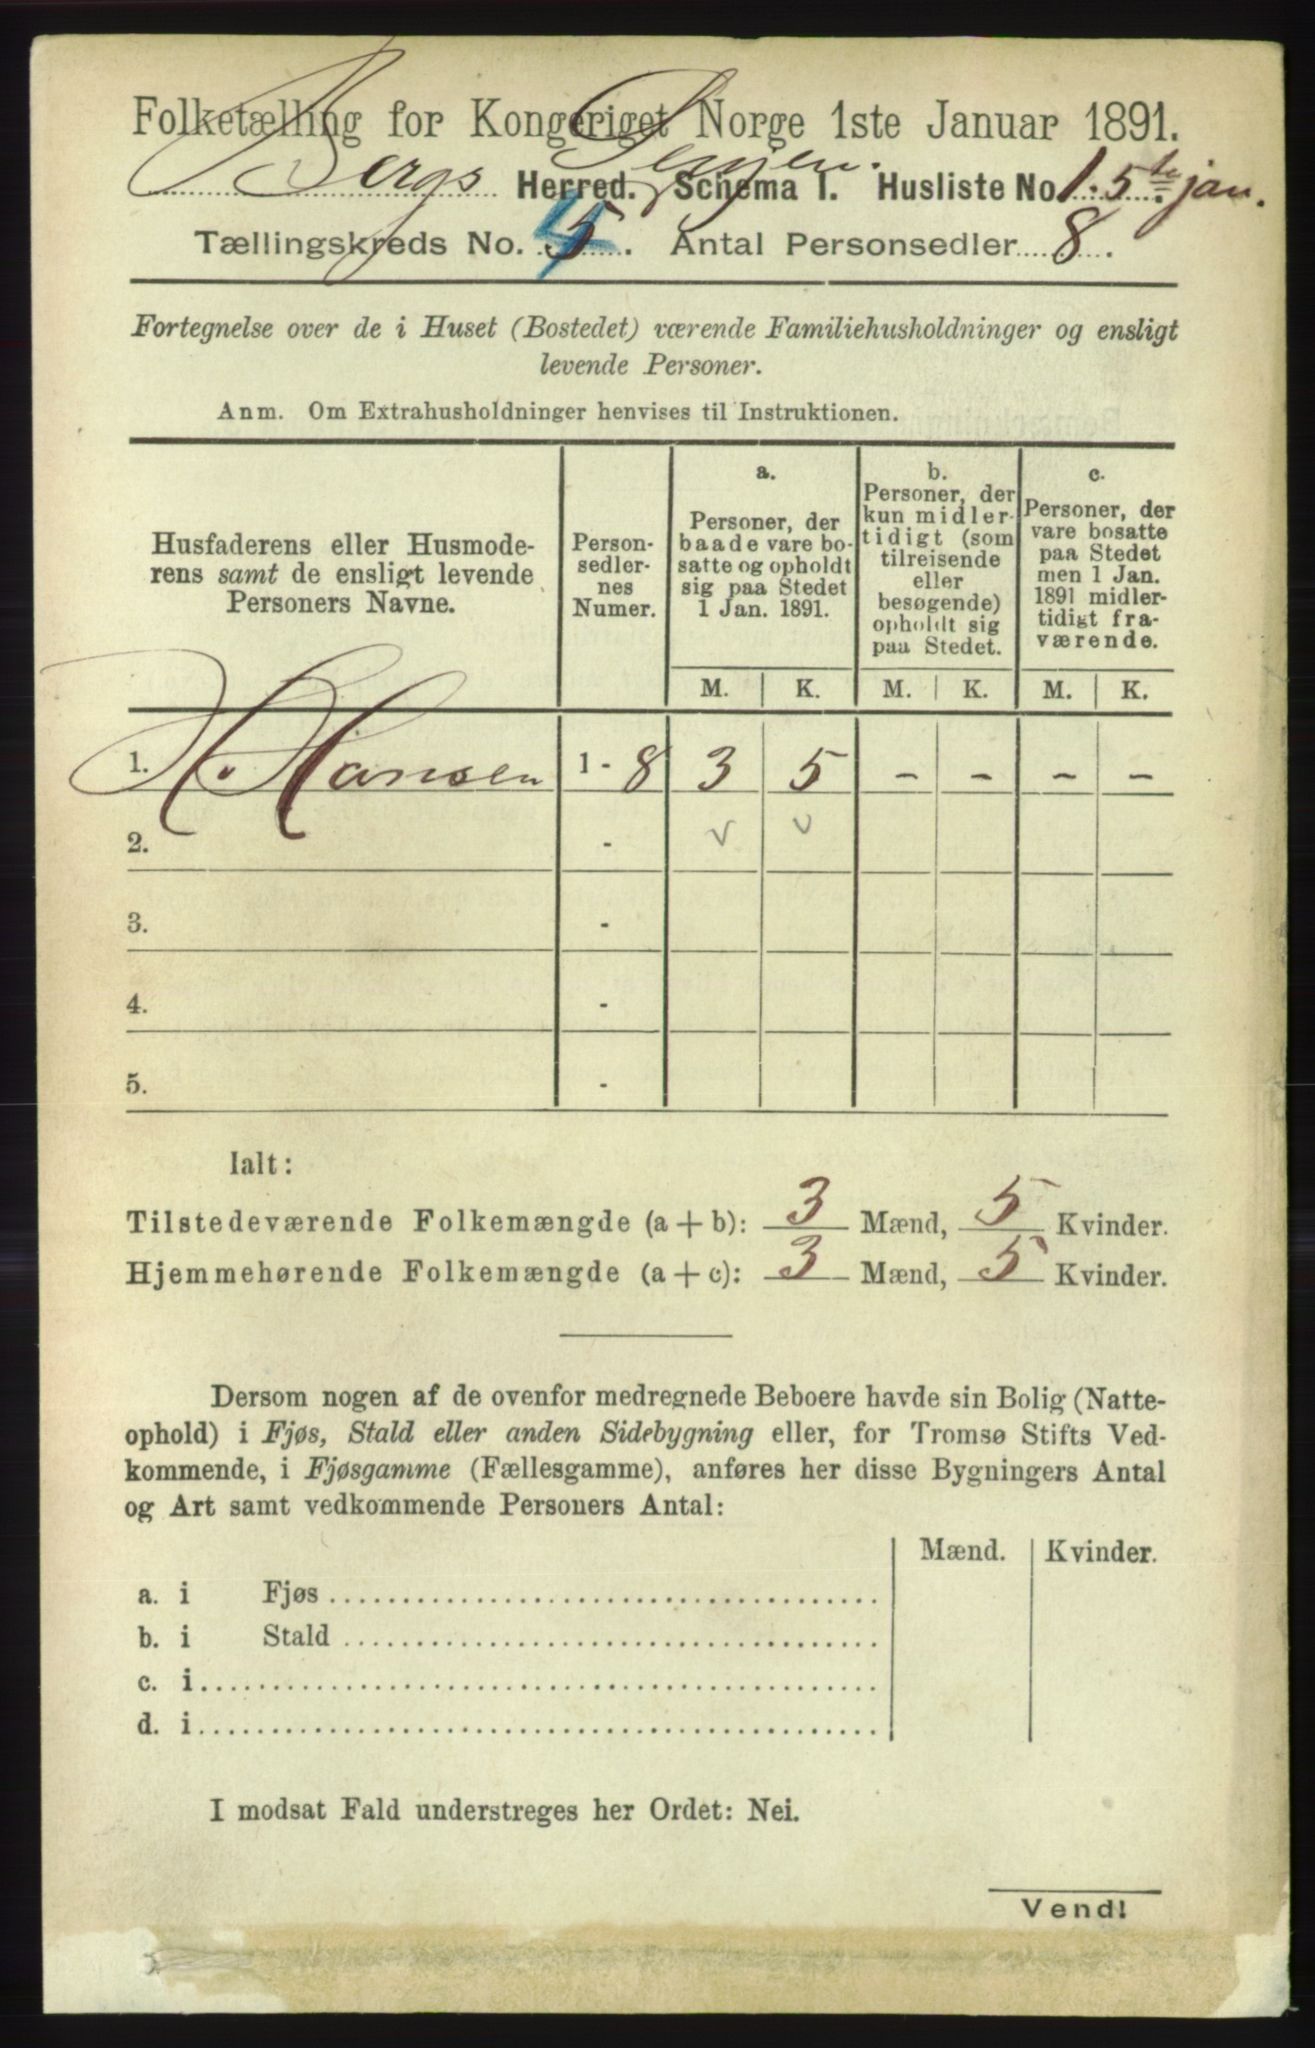 Folketælling for Kongeriget Norge 1ste Januar 1891.
Bergs Herred. Senjen. Schema 1. Husliste No 1. 5te jan.
Tællingskreds No. 5 4. Antal Personsedler 8.
Fortegnelse over de i Huset (Bostedet) værende Familiehusholdninger og ensligt
levende Personer.
Anm. Om Extrahusholdninger henvises til Instruktionen.
Husfaderens eller Husmode-
rens samt de ensligt levende
Personers Navne.
Person-
sedler-
nes
Numer.
a.
Personer, der
baade vare bo-
satte og opholdt
sig paa Stedet
1 Jan. 1891.
b.
Personer, der
kun midler-
tidigt (som
tilreisende
eller
besøgende)
opholdt sig
paa Stedet.
c.
Personer, der
vare bosatte
paa Stedet
men 1 Jan.
1891 midler-
tidigt fra-
værende.
M. K. M. K. M. K.
1. H. Hansen 1 - 8 3 5 - - - -
2. - v v
3. -
4. -
5. -
Ialt:
Tilstedeværende Folkemængde (a + b): 3 Mænd, 5 Kvinder.
Hjemmehørende Folkemængde (a + c): 3 Mænd, 5 Kvinder.
Dersom nogen af de ovenfor medregnede Beboere havde sin Bolig (Natte-
ophold) i Fjøs, Stald eller anden Sidebygning eller, for Tromsø Stifts Ved-
kommende, i Fjøsgamme (Fællesgamme), anføres her disse Bygningers Antal
og Art samt vedkommende Personers Antal:
Mænd. Kvinder.
a. i Fjøs
b. i Stald
c. i
d. i
I modsat Fald understreges her Ordet: Nei.
Vend!